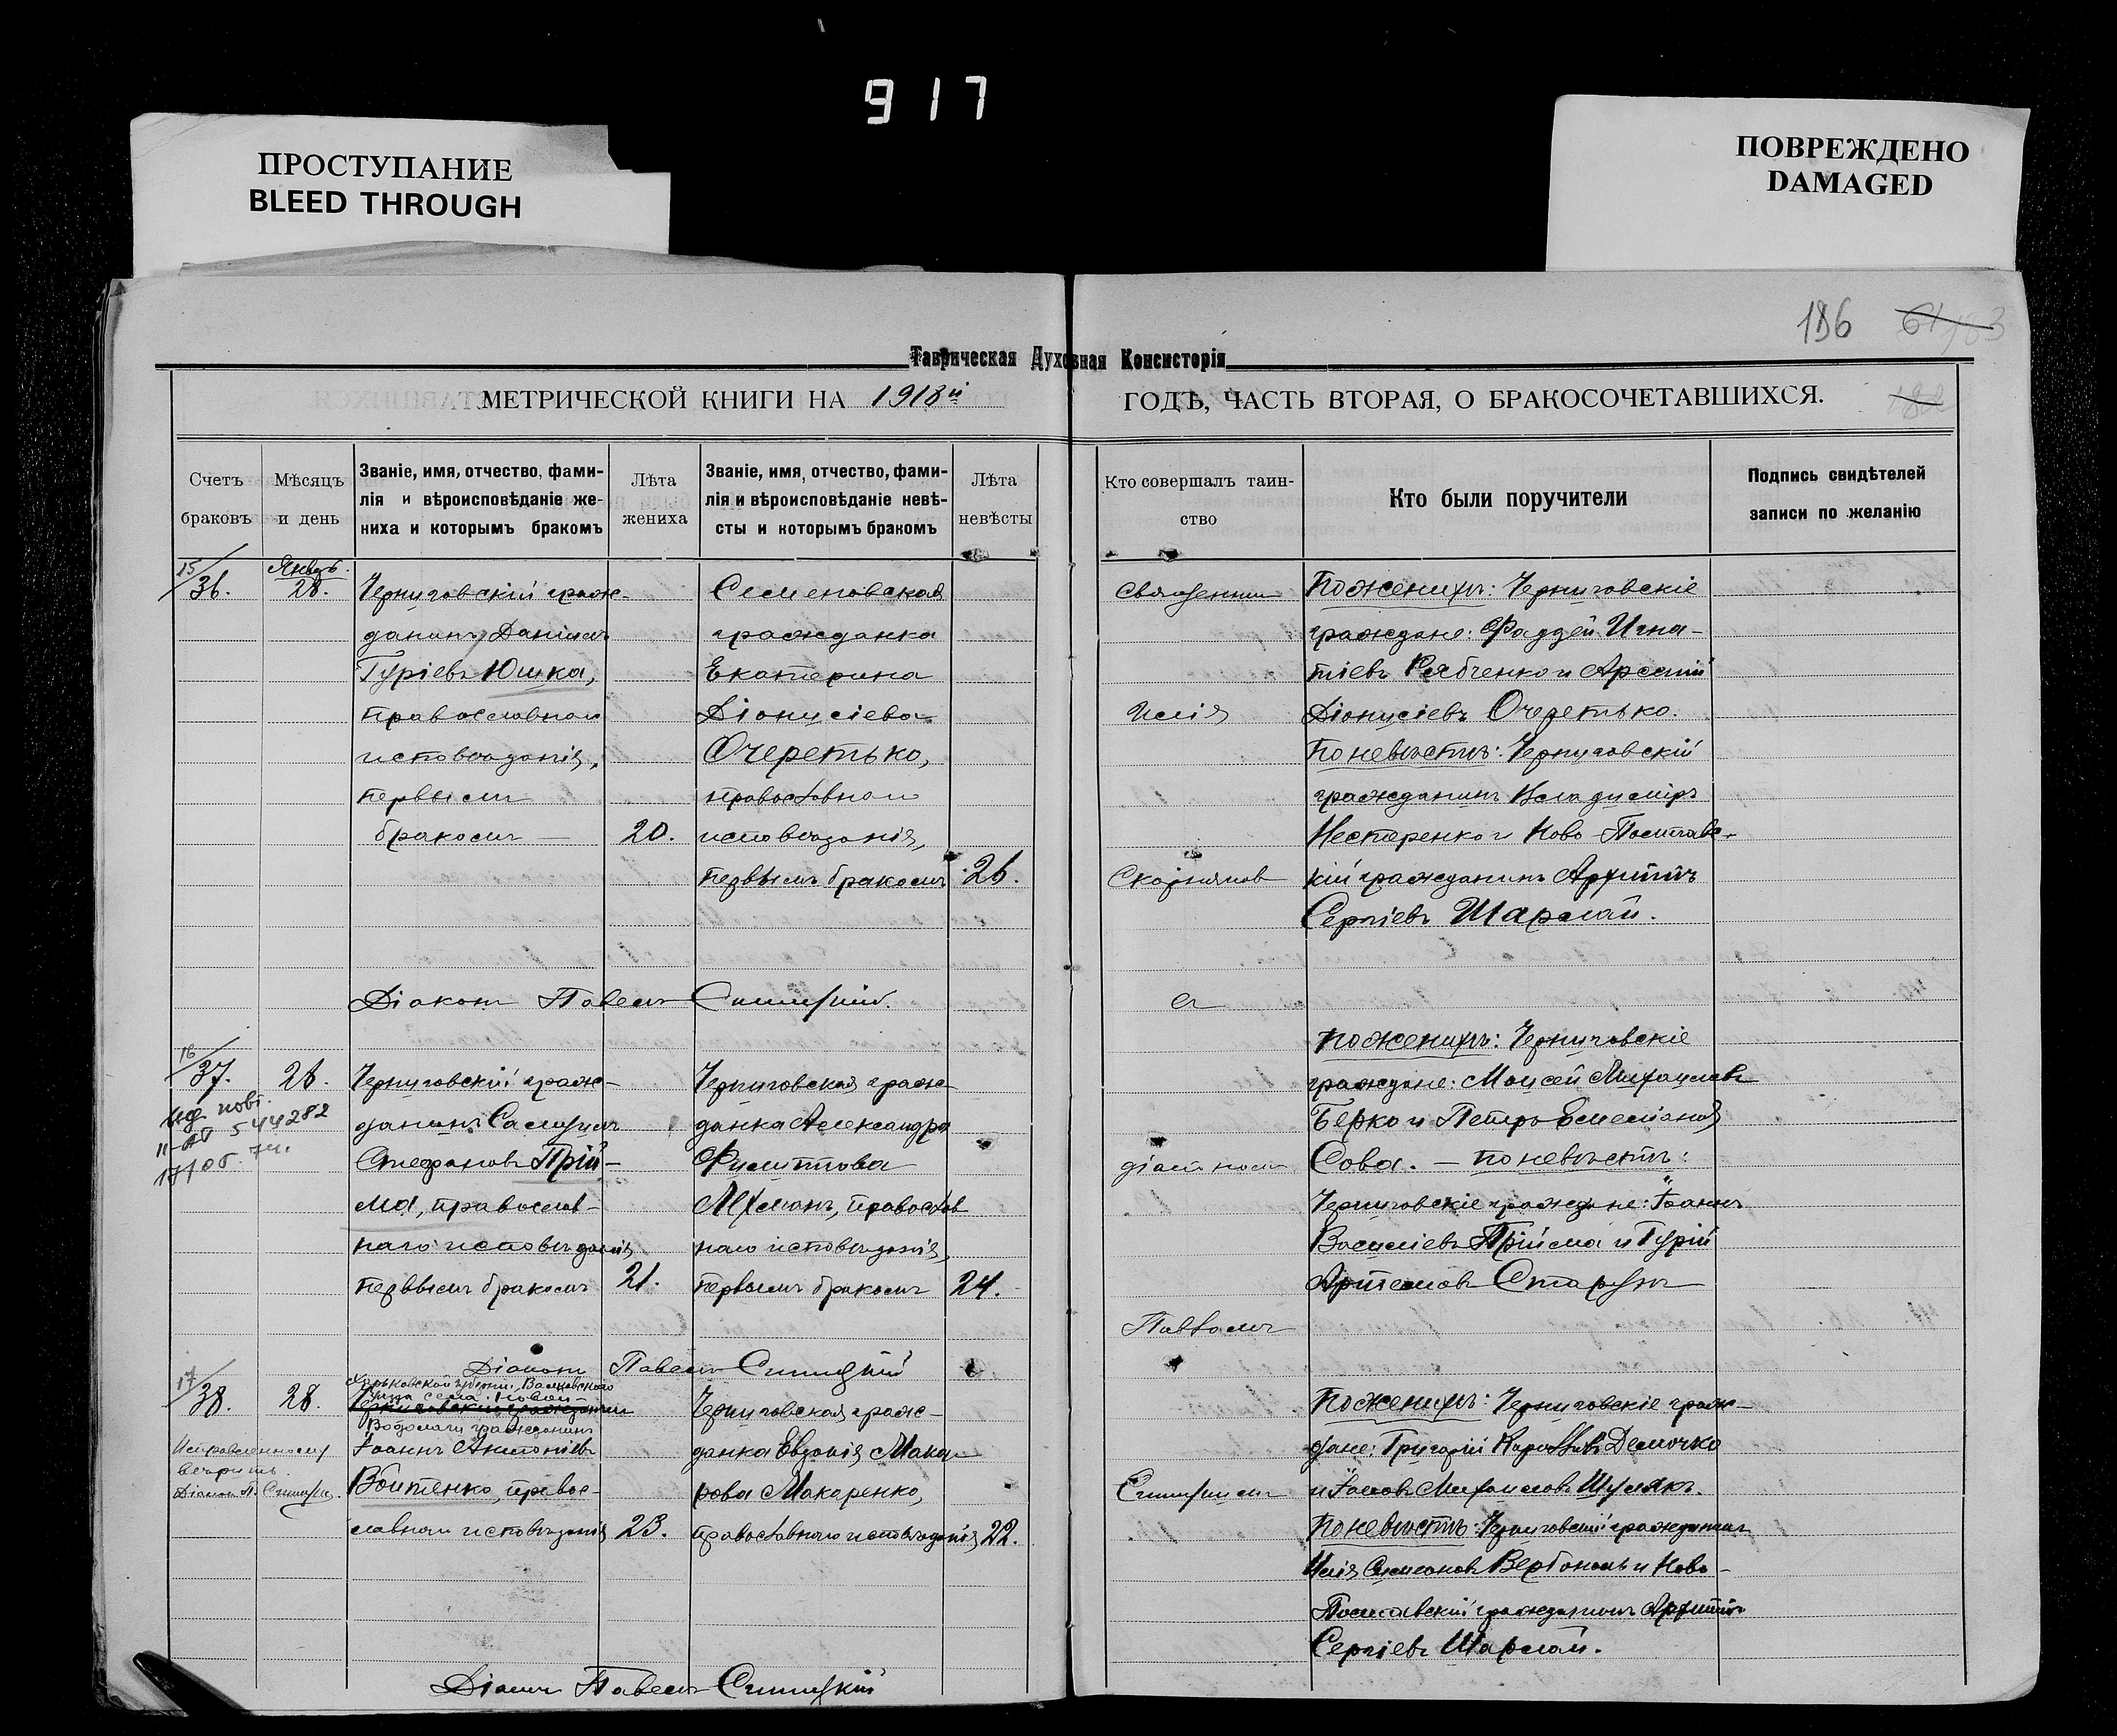 917
ПРОСТУПАНИЕ
BLEED THROUGH
ПОВРЕЖДЕНО
DAMAGED
186
Таврическая Духовная Консисторія
МЕТРИЧЕСКОЙ КНИГИ НА 1918й ГОДЪ, ЧАСТЬ ВТОРАЯ, О БРАКОСОЧЕТАВШИХСЯ.
Счетъ браковъ
Мѣсяцъ и день
Званіе, имя, отчество, фами-
лія и вѣроисповѣданіе же-
ниха и которымъ бракомъ
Лѣта жениха
Званіе, имя, отчество, фами-
лія и вѣроисповѣданіе невѣ-
сты и которымъ бракомъ
Лѣта невѣсты
Кто совершалъ таин-
ство
Кто были поручители
Подпись свидѣтелей
записи по желанію
15/36.
Январь.
28.
Черниговскій граж-
данинъ Даніилъ
Гуріевъ Юшка,
православнаго
исповѣданія,
первымъ
бракомъ —
20.
Семеновская
гражданка
Екатерина
Діонисіева
Очеретько,
православнаго
исповѣданія,
первымъ бракомъ
26.
Священник
Илія
Скорняков
По женихѣ: Черниговскіе
граждане: Фаддей Игна-
тіевъ Рябченко и Арсеній
Діонисіевъ Очеретько.
По невѣстѣ: Черниговскій
гражданинъ Владиміръ
Нестеренко и Ново-Полтавс-
кій гражданинъ Архиппъ
Сергіевъ Шарлай.
Діаконъ Павелъ Синицкій.
с
16/37.
28.
Черниговскій граж-
данинъ Самуилъ
Стефановъ Прій-
ма, православ-
наго исповѣданія
первымъ бракомъ
21.
Черниговская граж-
данка Александра
Филиппова
православ
наго исповѣданія,
первымъ бракомъ
24.
544282
діакономъ
Павломъ
По женихѣ: Черниговскіе
граждане: Моисей Михаиловъ
Берко и Петръ Емеліановъ
Сова. — По невѣстѣ:
Черниговскіе граждане: Іоаннъ
Василіевъ Прійма и Гурій
Артемовъ Старухъ
Діаконъ Павелъ Синицкій
17/38.
28.
Харьковской губерніи, Валковскаго
уѣзда села Новой
Черниговскій гражданинъ
Водолаги гражданинъ
Іоаннъ Антоніевъ
Войтенко, правос-
лавнаго исповѣданія
23.
Черниговская граж-
данка Евдокія Мака-
рова Макаренко,
православнаго исповѣданія
22.
Исправленному
вѣрить.
Діаконъ П. Синицкій.
Синицкимъ
По женихѣ: Черниговскіе граж-
дане: Григорій Кирилловъ Демочко
и Іаковъ Михаиловъ Шулякъ.
По невѣстѣ: Черниговскій гражданинъ
Илія Симеоновъ Вербоноль и Ново-
Полтавскій гражданинъ Архиппъ
Сергіевъ Шарлай.
Діаконъ Павелъ Синицкій